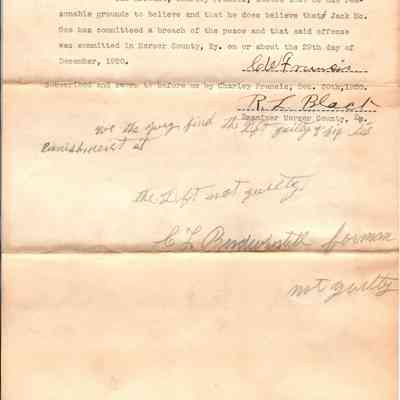 sonable grounds to believe and that he does believe that Jack Mc.
Gee has committed a breach of the peace and that said offense
was committed in Mercer County, Ky. on or about the 29th day of
December, 1920.
C W Francis
Subscribed and sworn to before me by Charley Francis, Dec. 30th, 1920.
R. L. Black
Examiner Mercer County, Ky.
we the jury find the Dft guilty & fix his
punishment at
the Dft not guilty
C L forman
not guilty